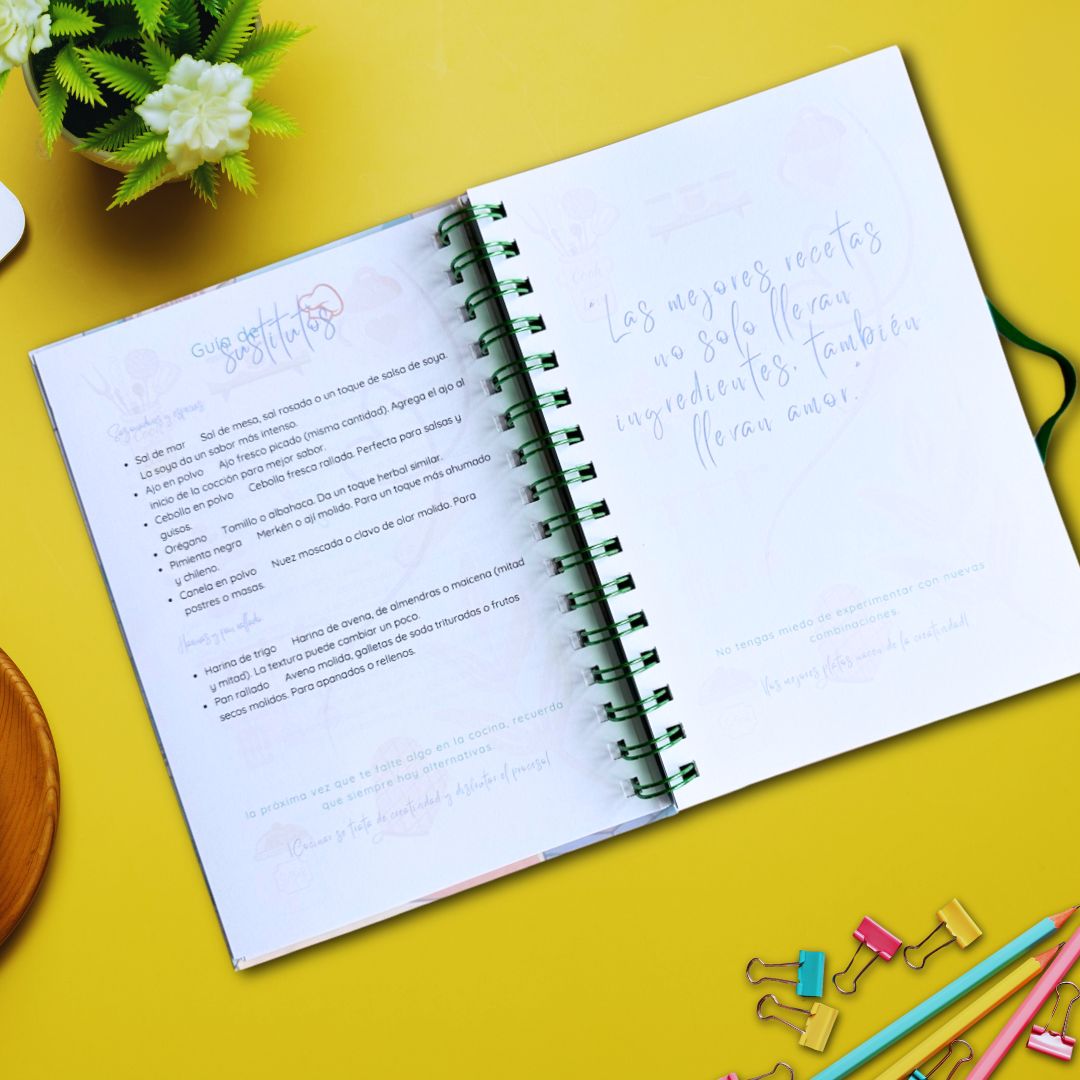 Guía de
sustitutos
Sazonadores y especias
Sal de mar Sal de mesa, sal rosada o un toque de salsa de soya.
La soya da un sabor más intenso.
Ajo en polvo Ajo fresco picado (misma cantidad). Agrega el ajo al
inicio de la cocción para mejor sabor.
Cebolla en polvo Cebolla fresca rallada. Perfecta para salsas y
guisos.
Orégano Tomillo o albahaca. Da un toque herbal similar.
Pimienta negra Merkén o ají molido. Para un toque más ahumado
y chileno.
Canela en polvo Nuez moscada o clavo de olor molido. Para
postres o masas.
Harinas y pan rallado
Harina de trigo Harina de avena, de almendras o maicena (mitad
y mitad). La textura puede cambiar un poco.
Pan rallado Avena molida, galletas de soda trituradas o frutos
secos molidos. Para apanados o rellenos.
la próxima vez que te falte algo en la cocina, recuerda
que siempre hay alternativas.
¡Cocinar se trata de creatividad y disfrutar el proceso!
"Las mejores recetas
no solo llevan
ingredientes, también
llevan amor."
No tengas miedo de experimentar con nuevas
combinaciones.
¡Los mejores platos nacen de la creatividad!